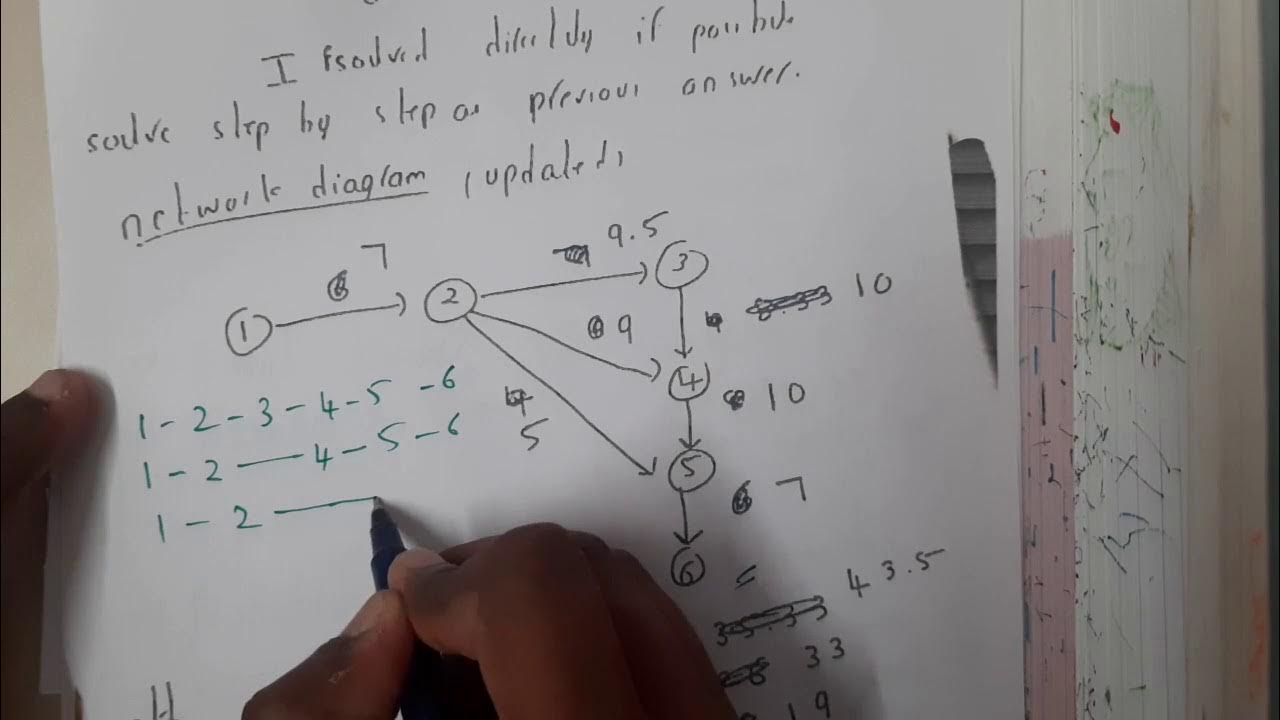 I solved directly if possible
solve step by step as previous answer.
network diagram (updated)
7
9.5
1
2
3
9
10
4
10
5
5
7
6
1 - 2 - 3 - 4 - 5 - 6
1 - 2 — 4 - 5 - 6
1 - 2 —
43.5
33
19